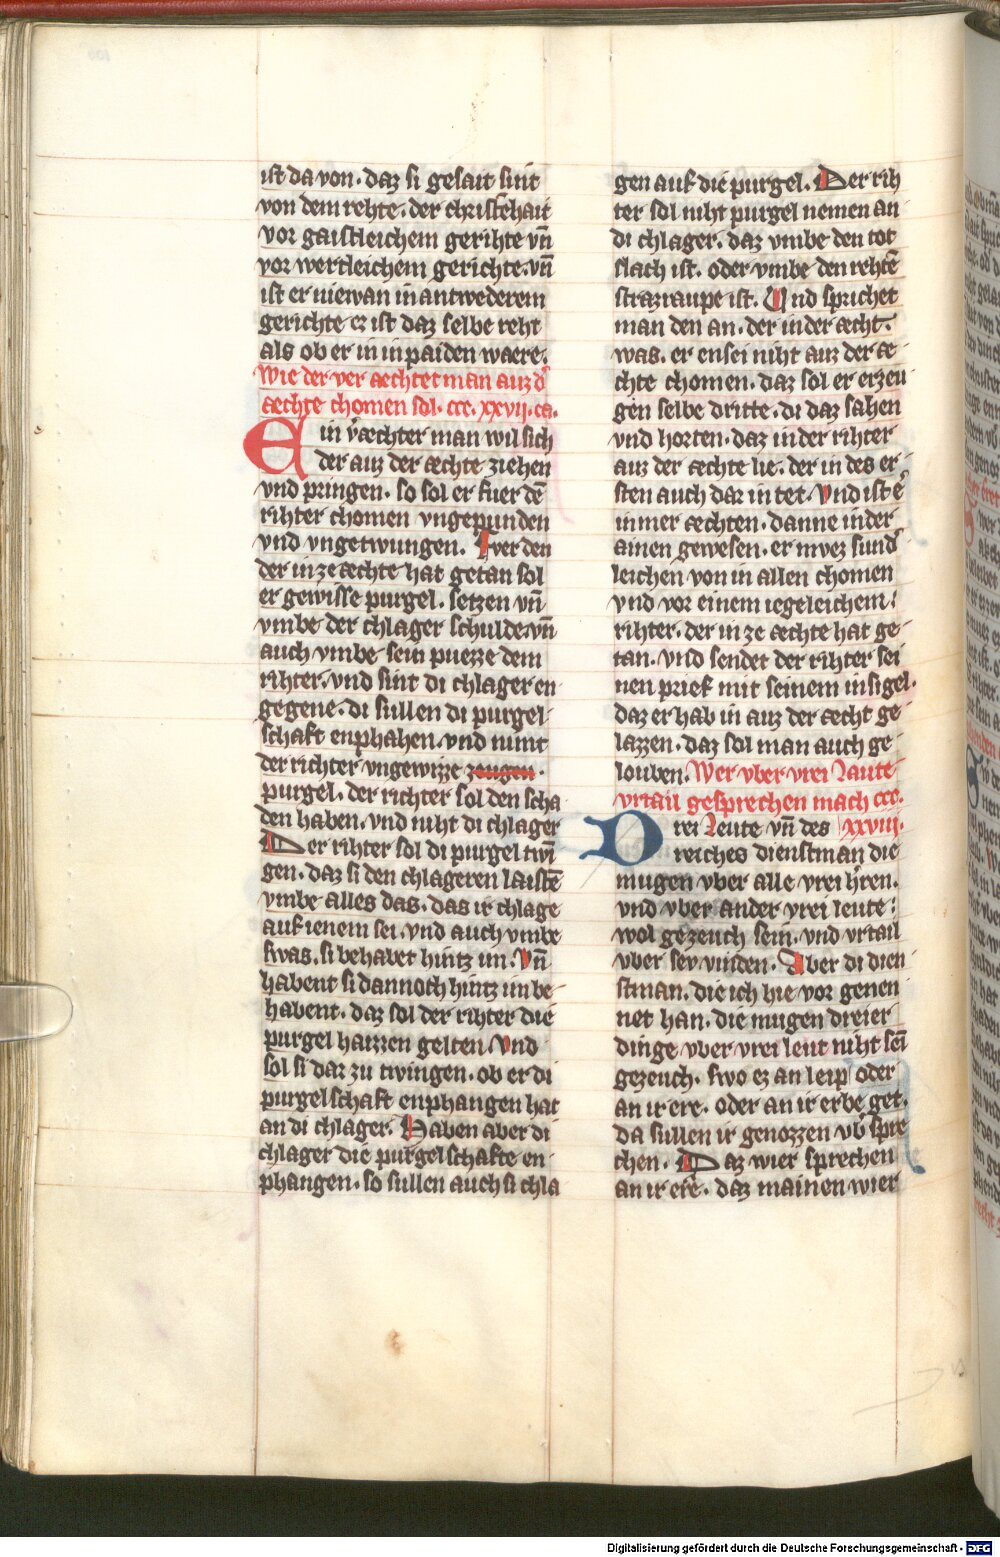 ist da von. daz si gesait sint
von dem rehte. der christehait
vor gaistleichem gerihte vn̄
vor wertleichem gerichte. vn̄
ist er niewan in antwederem
gerichte ez ist daz selbe reht
als ob er in in paiden waere.
Wie der ver aechtet man auz d᾽
aechte chomen sol. ccc. xxvij. ca.
Ein v᾽aechter man wil sich
der auz der aechte ziehen
vnd pringen. so sol er fuer dē
rihter chomen vngepunden
vnd vngetwungen. Fver den
der in ze aechte hat getan sol
er gewisse purgel. setzen vn̄
vmbe der chlager schulde. vn̄
auch vmbe sein puezze dem
rihter. vnd sint di chlager en
gegene. di sullen di purgel
schaft enphahen. vnd nimt
der richter vngewizze zeugen.
purgel. der richter sol den scha
den haben. vnd niht di chlager
Der rihter sol di purgel twī
gen. daz si den chlageren laistē
vmbe alles das. das ir chlage
auf ienem sei. vnd auch vmbe
swas. si behabet hintz im. Vn̄
habent si dannoch hintz im be
habent. daz sol der rihter die
purgel haizzen gelten. Vnd
sol si dar zu twingen. ob er di
purgelschaft enphangen hat
an di chlager. Haben aber di
chlager die purgelschafte en
phangen. so sullen auch si chla
gen auf die purgel. Der rih
ter sol niht purgel nemen an
di chlager. daz vmbe den tot
slach ist. oder vmbe den rehtē
strazraupe ist. Vnd sprichet
man den an. der in der aecht.
was. er ensei niht auz der ae
chte chomen. daz sol er erzeu
gen selbe dritte. di daz sahen
vnd horten. daz in der rihter
auz der aechte lie. der in des er
sten auch dar in tet. Vnd ist e᾽
in mer aechten. danne in der
ainen gewesen. er mvez sund᾽
leichen von in allen chomen
vnd vor einem iegeleichem.
rihter. der in ze aechte hat ge
tan. vnd sendet der rihter sei
nen prief mit seinem insigel.
daz er hab in auz der aecht ge
lazzen. daz sol man auch ge
louben. Wer vber vrei Laute
vrtail gesprechen mach ccc.
Drei Leute vn̄ des xxviij.
reiches dienstman die
mugen vber alle vrei h᾽ren.
vnd vber ander vrei leute.
wol gezeuch sein. vnd vrtail
vber sev vinden. Aber di dien
stman. die ich hie vor genen
net han. die mugen dreier
dinge vber vrei leut niht seī
gezeuch. swo ez an leip oder
an ir ere. oder an ir erbe get.
da sullen ir genozzen vb᾽ spre
chen. Daz wier sprechen
an ir ere. daz mainen wier
Digitalisierung gefördert durch die Deutsche Forschungsgemeinschaft - DFG